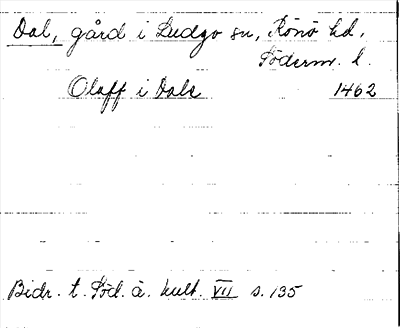 Dal, gård i Ludgo sn, Rönö hd,
Söderm. l.
Olaff i Dale
1462
Bidr. t. Söd. ä. kult. VII s. 135